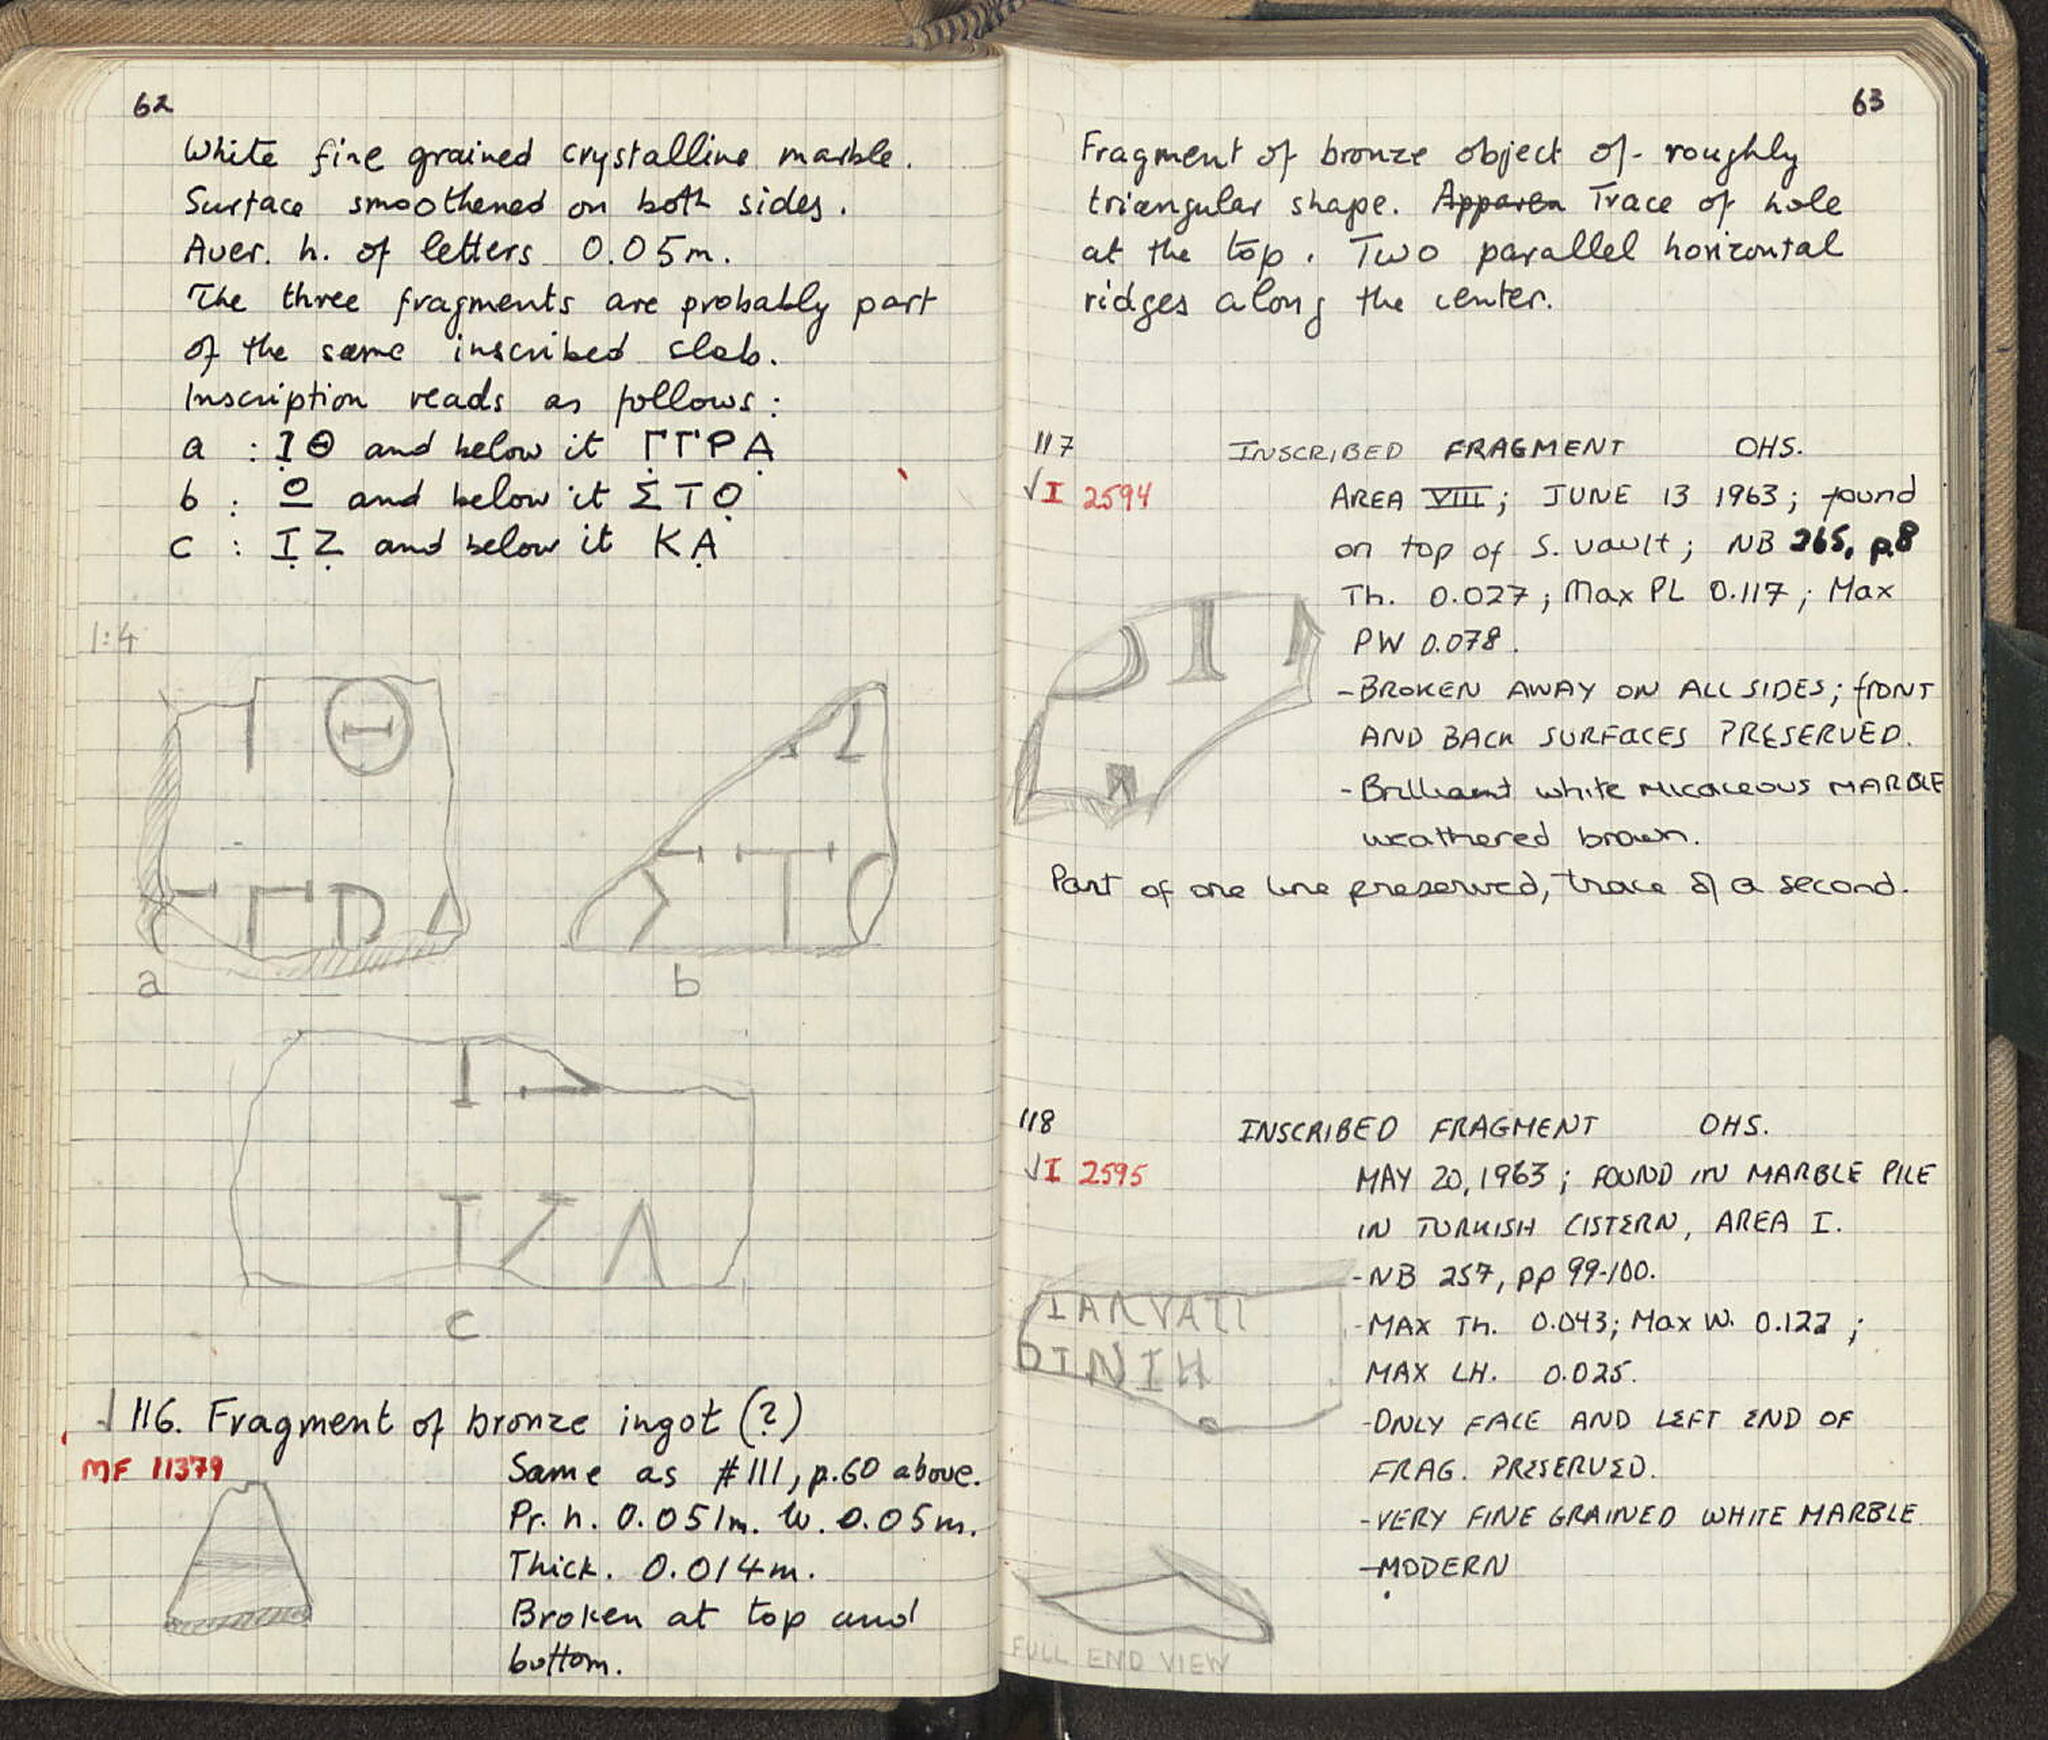 62
White fine grained crystalline marble.
Surface smoothened on both sides.
Aver. h. of letters 0.05m.
The three fragments are probably part
of the same inscribed slab.
Inscription reads as follows:
a : Ι̣Θ and below it Γ̣ΓΡΑ̣
b : Ο and below it ΣΤΟ̣
c : Ι̣Ζ̣ and below it ΚΑ̣
1:4
Ι Θ
Γ Γ Ρ Α
a
Σ Τ Ο
b
Ι
Τ Ζ Λ
c
√ 116. Fragment of bronze ingot (?)
MF 11379
Same as #111, p.60 above.
Pr. h. 0.051m. W. 0.05m.
Thick. 0.014m.
Broken at top and
bottom.
63
Fragment of bronze object of roughly
triangular shape. Apparen Trace of hole
at the top. Two parallel horizontal
ridges along the center.
117 INSCRIBED FRAGMENT OHS.
√ I 2594
AREA VIII; JUNE 13 1963; found
on top of S. vault; NB 265, p.8
Th. 0.027; Max PL 0.117; Max
PW 0.078.
-BROKEN AWAY ON ALL SIDES; FRONT
AND BACK SURFACES PRESERVED.
-Brilliant white micaceous MARBLE
weathered brown.
Part of one line preserved, trace of a second.
118 INSCRIBED FRAGMENT OHS.
√ I 2595
MAY 20, 1963; FOUND IN MARBLE PILE
IN TURKISH CISTERN, AREA I.
-NB 257, pp 99-100.
-MAX Th. 0.043; Max W. 0.122;
MAX LH. 0.025.
-ONLY FACE AND LEFT END OF
FRAG. PRESERVED.
-VERY FINE GRAINED WHITE MARBLE
-MODERN
IARVATI
DINIH
FULL END VIEW